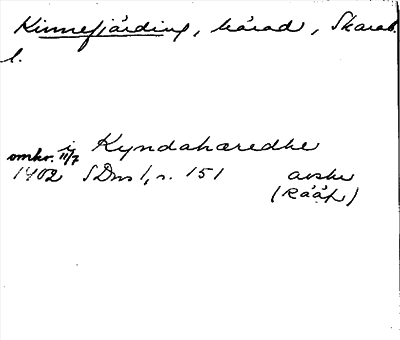 Kinnefjärding, härad, Skarab.
l.
i Kyndahæredhe
omkr. 11/7
1402 SDns 1, s. 151 avskr
(RäÄp)